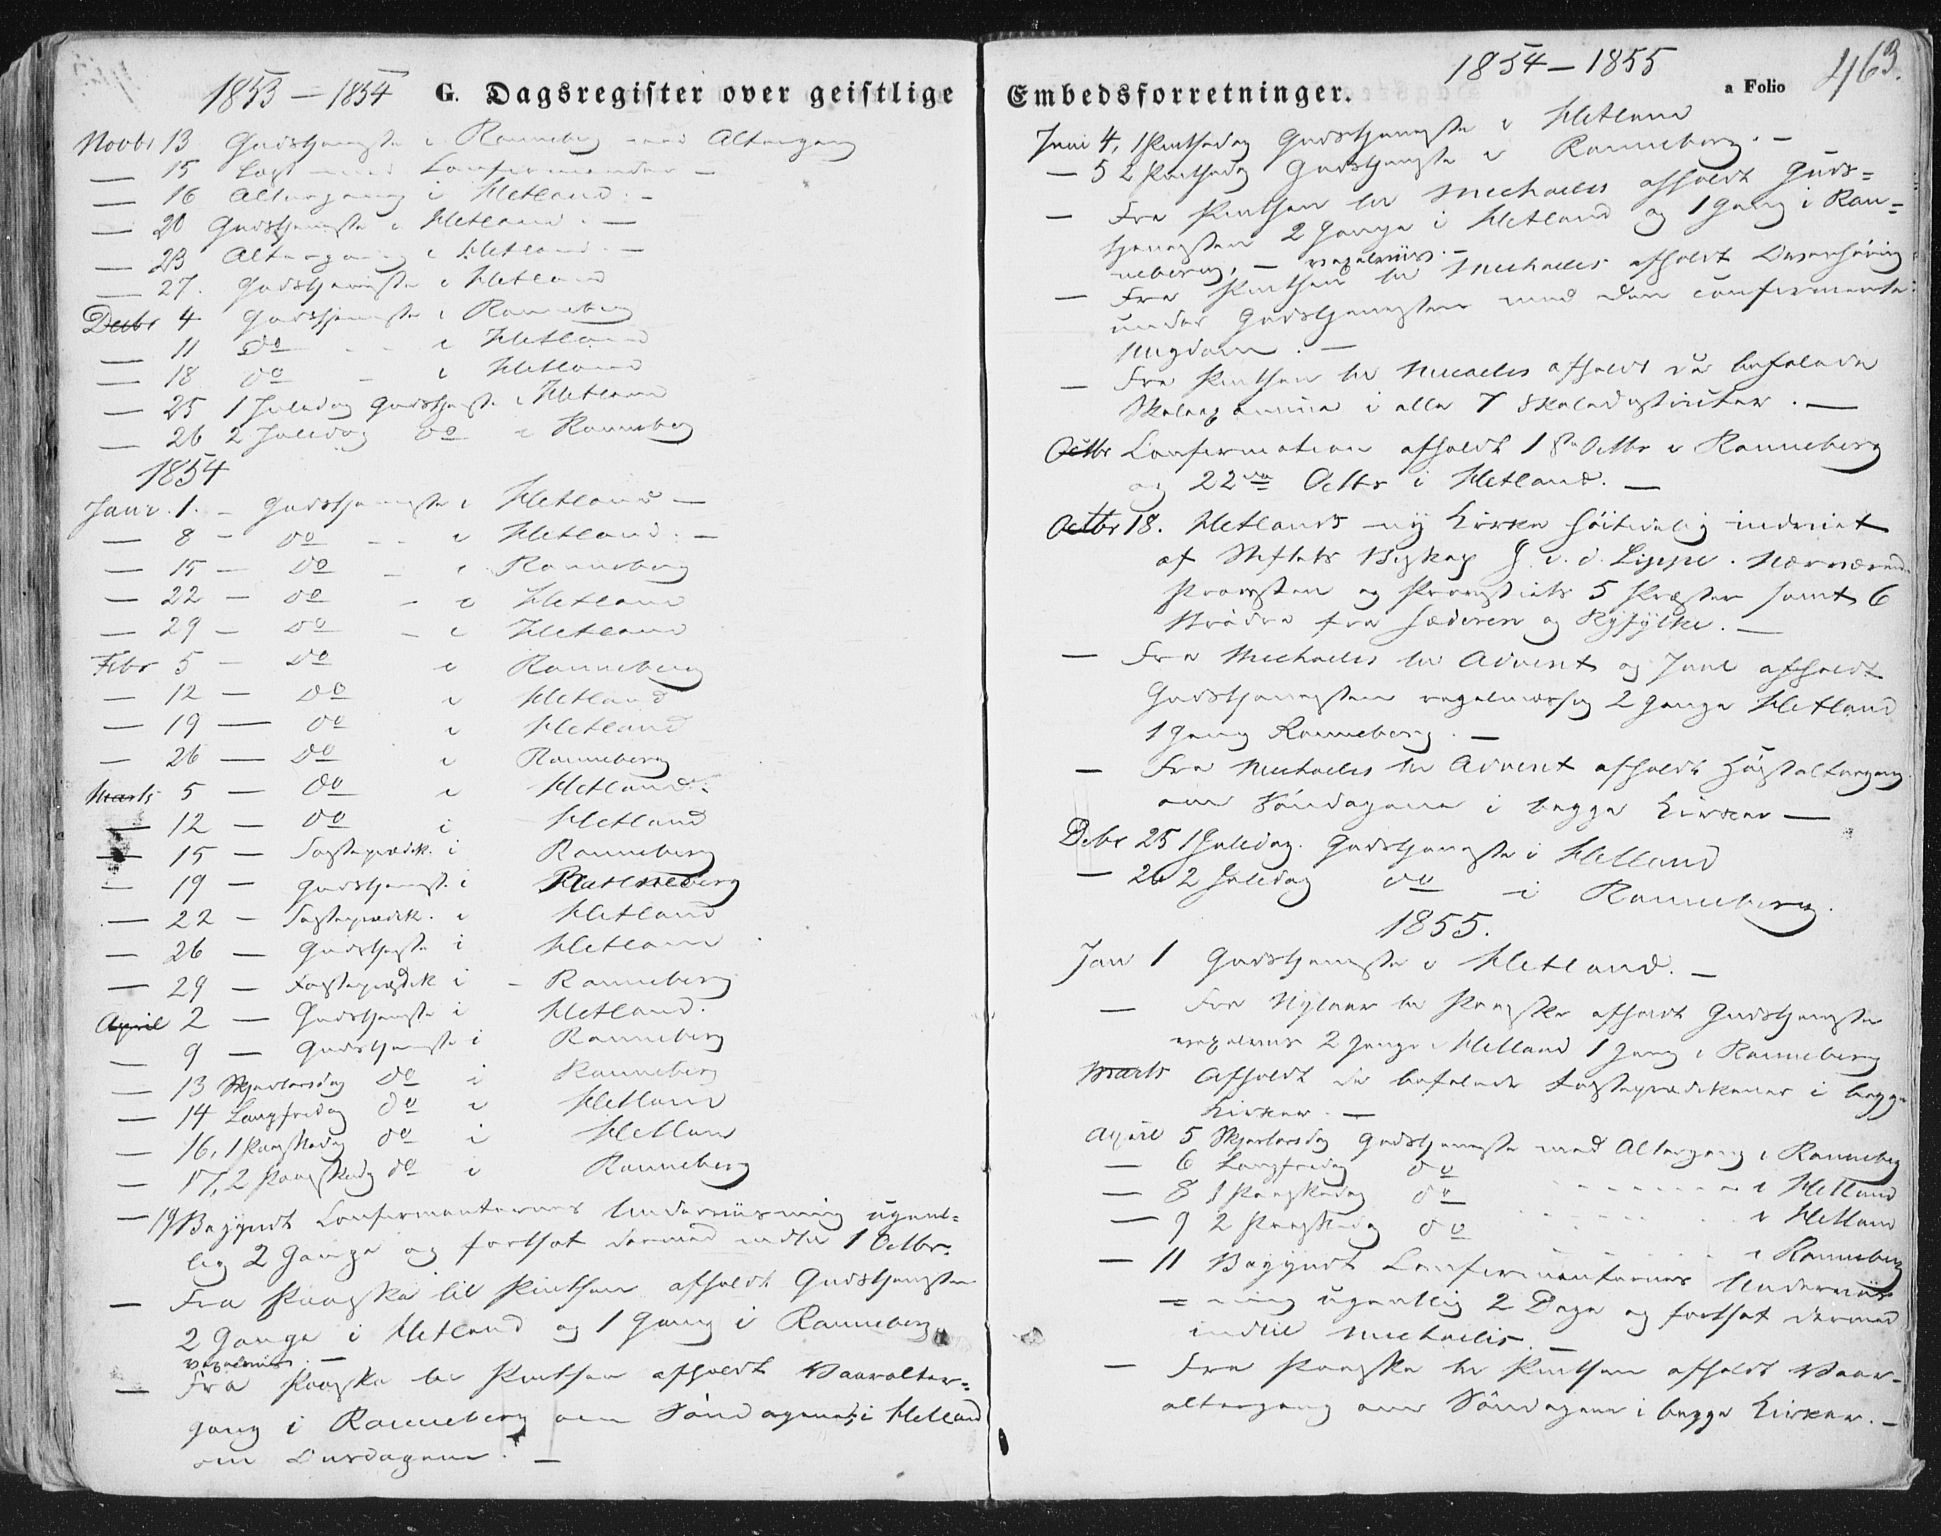 1853 — 1854 G. Dagsregister over geistlige
Novbr 13 Gudstjeneste i Ranneberg med Altergang
— 15 Lagt med Confirmander —
— 16 Altergang i Hetland. —
— 20 Gudstjeneste i Hetland. —
— 23 Altergang i Hetland. —
— 27. Gudstjeneste i Hetland
Decbr 4 Gudstjeneste i Ranneberg
— 11 do - - i Hetland
— 18 do - i Hetland
— 25 1 Juledag Gudstjenste i Hetland
— 26 2 Juledag do i Ranneberg
1854
Janr. 1. — Gudstjeneste i Hetland —
— 8 — do - - i Hetland. —
— 15 — do - i Ranneberg
— 22 — do - i Hetland
— 29 — do - i Hetland
Febr 5 — do i Ranneberg
— 12 — do i Hetland
— 19 — do i Hetland
— 26 — do i Ranneberg
Marts 5 — do i Hetland.
— 12 — do i Hetland
— 15 — Fasteprædik. i Ranneberg
— 19 — Gudstjenest. i
— 22 — Fasteprædik. i Hetland
— 26 — Gudstjenste i Hetland
— 29 — Fasteprædik i - Ranneberg
April 2 — Gudstjeneste i Hetland.
— 9 — Gudstjeneste i Ranneberg
— 13 Skjærtorsdag do i Ranneberg
— 14 Langfredag do i Hetland
— 16, 1 Paaskedag do i Hetland
— 17, 2 Paaskedag do i Ranneberg
— 19 Begyndt Confirmanternes Underviisning ugent=
lig 2 Gange og fortsat dermed indtil 1 Octbr.
— Fra Paaske til Pintsen afholdt Gudstjenesten
2 Gange i Hetland og 1 Gang i Ranneberg
regelmæs. —
— Fra Paaske til Pintsen afholdt Vaaralter=
gang i Ranneberg om Søndagene, i Hetland
om Onsdagene. —
Embedsforretninger. 1854 — 1855 a Folio 463.
Juni 4, 1 Pintsedag Gudstjeneste i Hetland
— 5 2 Pintsedag Gudstjeneste i Ranneberg. —
— Fra Pintsen til Michaelis afholdt Guds=
tjenesten 2 Gange i Hetland og 1 Gang i Ran=
neberg, — regelmæs. —
— Fra Pintsen til Michaelis afholdt Overhøring
under Gudstjenesten med den confirmerte
Ungdom. —
— Fra Pintsen til Micaelis afholdt de befalede
Skoleexamina i alle 7 Skoledistricter. —
Octbr Confirmation afholdt 1ste Octbr i Ranneberg
og 22de Octbr i Hetland. —
Octbr 18. Hetlands ny Kirke høitidelig indviet
af Stiftets Biskop J. v. d. Lippe. Nærværende
Provsten og Provstiets 5 Præster samt 6
Brødre fra Jæderen og Ryfylke. —
— Fra Michaelis til Advent og Juul afholdt
Gudstjenesten regelmæssig 2 Gange Hetland
1 Gang Ranneberg. —
— Fra Michaelis til Advent afholdt Høstaltergang
om Søndagene i begge Kirker —
Debr 25 1 Juledag. Gudstjeneste i Hetland
— 26 2 Juledag do — i Ranneberg.
1855.
Jan 1 Gudstjeneste i Hetland. —
— Fra Nytaar til Paaske afholdt Gudstjenesten
regelmæs 2 Gange i Hetland 1 Gang i Ranneberg
Marts Afholdt de befalede Fasteprædikener i begge
Kirker. —
April 5 Skjærtorsdag Gudstjeneste med Altergang i Ranneberg
— 6 Langfredag do - - - - i Hetland
— 8 1 Paaskedag do - - - i Hetland
— 9 2 Paaskedag do - - - - i Ranneberg
— 11 Begyndt Confirmanternes Underviis
= ning ugentlig 2 Dage og fortsat dermed
indtil Michaelis. —
— Fra Paaske til Pintsen afholdt Vaar-
altergang om Søndagene i begge Kirker. —